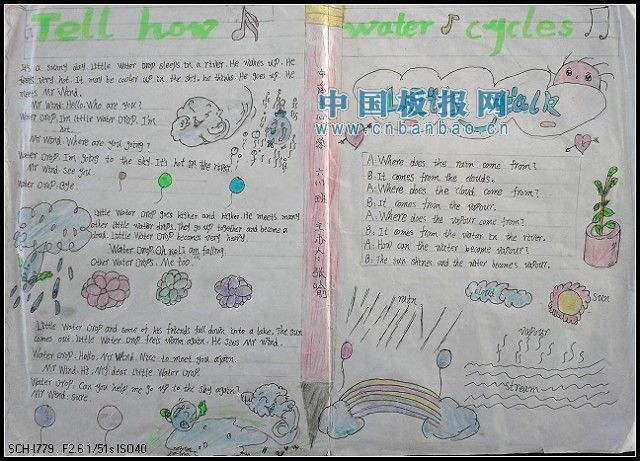 Tell how water cycles
It's a sunny day. Little Water Drop sleeps in a river. He wakes up. He
feels very hot. It may be cooler up in the sky, he thinks. He goes up. He
meets Mr Wind.
Mr Wind: Hello. Who are you?
Water Drop: I'm Little Water Drop. I'm
hot.
Mr Wind: Where are you going?
Water Drop: I'm going to the sky. It's hot in the river.
Mr Wind: See you.
Water Drop: Bye.
Little Water Drop goes higher and higher. He meets many
other little water drops. They go up together and become a
cloud. Little Water Drop becomes very heavy.
Water Drop: Oh no! I am falling.
Other Water Drops: Me too.
Little Water Drop and some of his friends fall down into a lake. The sun
comes out. Little Water Drop feels warm again. He sees Mr Wind.
Water Drop: Hello, Mr Wind. Nice to meet you again.
Mr Wind: Hi, My dear Little Water Drop.
Water Drop: Can you help me go up to the sky again?
Mr Wind: Sure.
六(1)班
talk
A: Where does the rain come from?
B: It comes from the clouds.
A: Where does the cloud come from?
B: It comes from the vapour.
A: Where does the vapour come from?
B: It comes from the water in the river.
A: How can the water become vapour?
B: The sun shines and the water becomes vapour.
rain
cloud
sun
vapour
stream
中国板报网
www.cnbanbao.cn
SCH-I779 . F2.6 1/51s ISO40